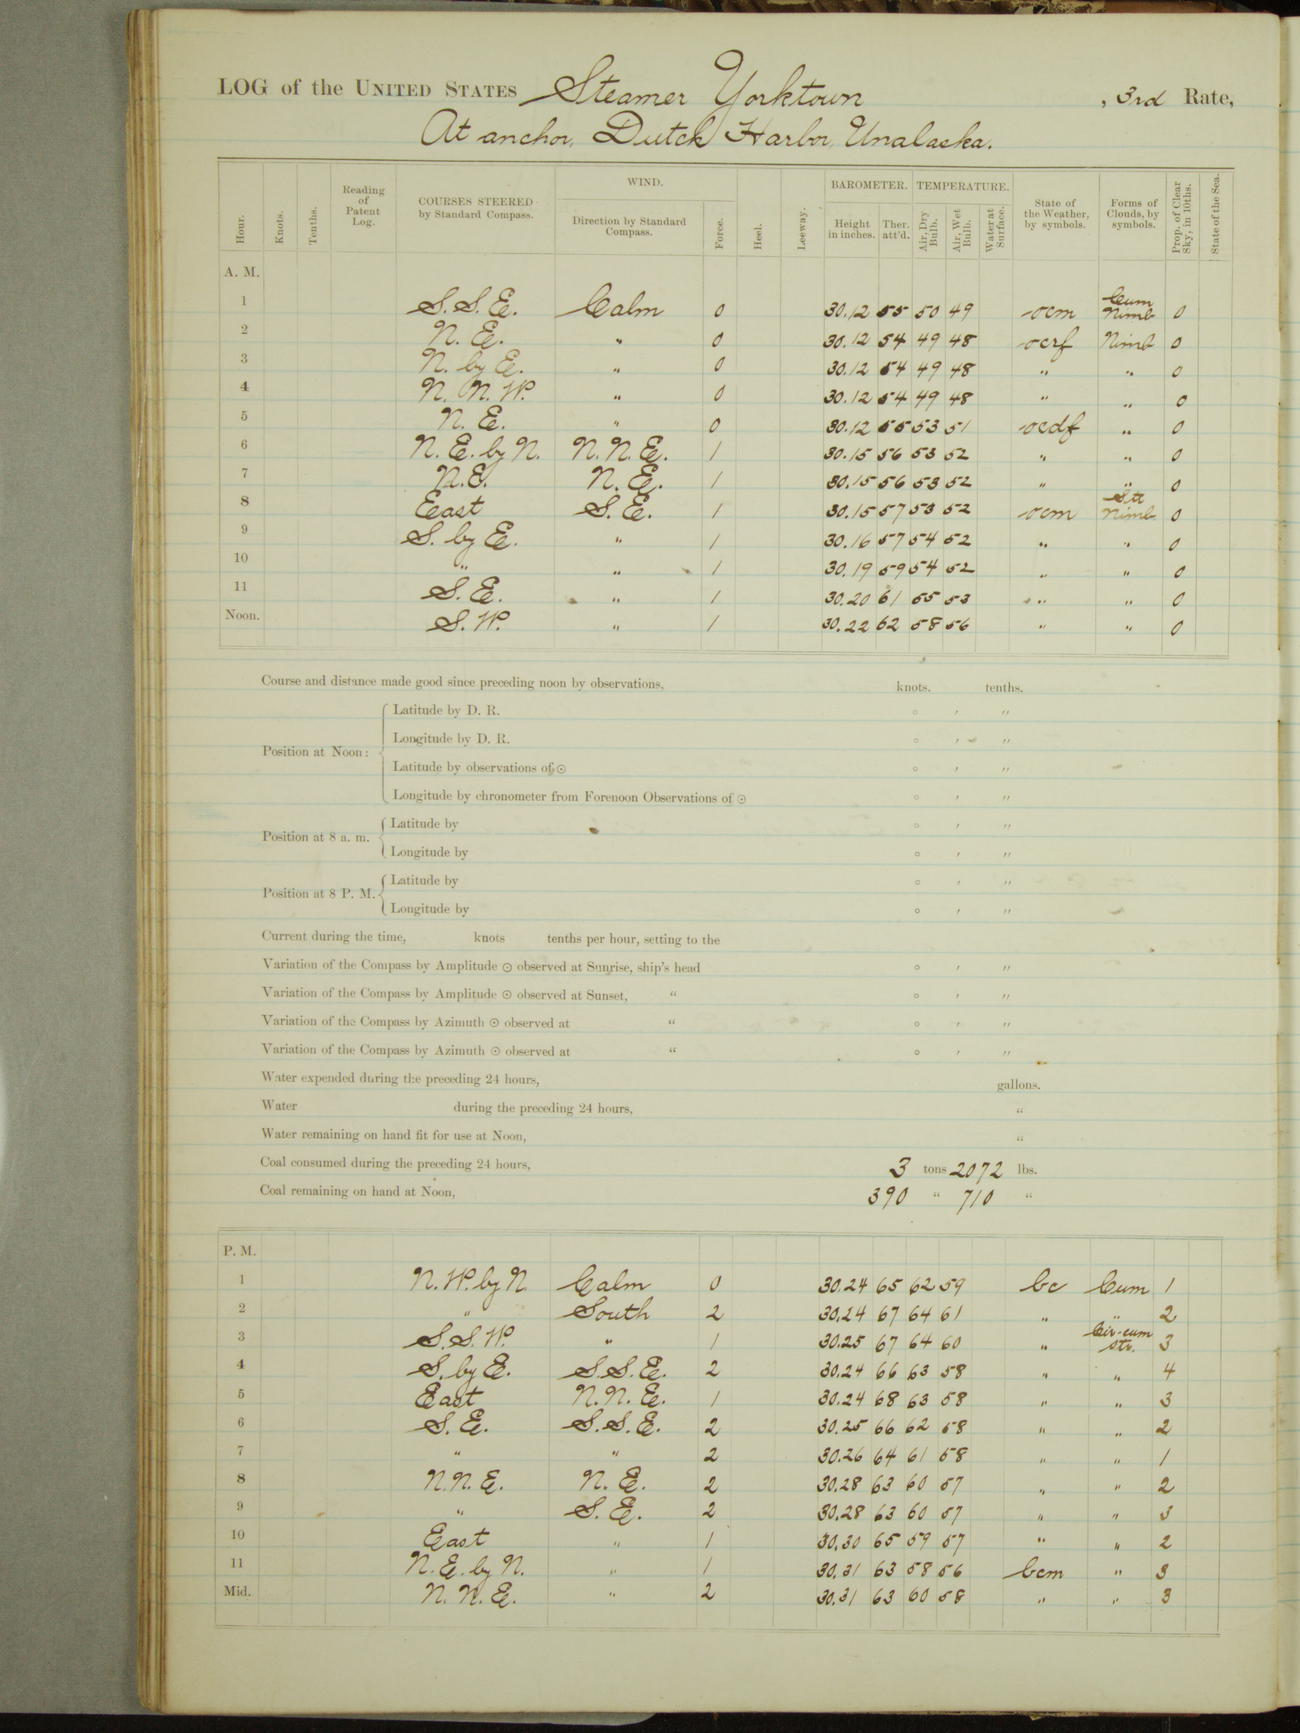 LOG of the UNITED STATES Steamer Yorktown, 3rd Rate,
At anchor, Dutch Harbor, Unalaska.
Hour. Knots. Tenths. Reading of Patent Log. COURSES STEERED by Standard Compass. WIND. Direction by Standard Compass. Force. Heel. Leeway. BAROMETER. Height in inches. Ther. att'd. TEMPERATURE. Air, Dry Bulb. Air, Wet Bulb. Water at Surface. State of the Weather, by symbols. Forms of Clouds, by symbols. Prop. of Clear Sky, in 10ths. State of the Sea.
A. M.
1 S. S. E. Calm 0 30.12 55 50 49 ocm Cum Nimb 0
2 N. E. " 0 30.12 54 49 48 ocrf Nimb 0
3 N. by E. " 0 30.12 54 49 48 " " 0
4 N. N. W. " 0 30.12 54 49 48 " " 0
5 N. E. " 0 30.12 55 53 51 ocdf " 0
6 N. E. by N. N. N. E. 1 30.15 56 53 52 " " 0
7 N. E. N. E. 1 30.15 56 53 52 " " 0
8 East S. E. 1 30.15 57 53 52 ocm Str Nimb 0
9 S. by E. " 1 30.16 57 54 52 " " 0
10 " " 1 30.19 59 54 52 " " 0
11 S. E. " 1 30.20 61 55 53 " " 0
Noon. S. W. " 1 30.22 62 58 56 " " 0
Course and distance made good since preceding noon by observations, knots. tenths.
Position at Noon: Latitude by D. R. ° ′ ″
Longitude by D. R. ° ′ ″
Latitude by observations of ☉ ° ′ ″
Longitude by chronometer from Forenoon Observations of ☉ ° ′ ″
Position at 8 a. m. Latitude by ° ′ ″
Longitude by ° ′ ″
Position at 8 P. M. Latitude by ° ′ ″
Longitude by ° ′ ″
Current during the time, knots tenths per hour, setting to the
Variation of the Compass by Amplitude ☉ observed at Sunrise, ship's head ° ′ ″
Variation of the Compass by Amplitude ☉ observed at Sunset, " ° ′ ″
Variation of the Compass by Azimuth ☉ observed at " ° ′ ″
Variation of the Compass by Azimuth ☉ observed at " ° ′ ″
Water expended during the preceding 24 hours, gallons.
Water during the preceding 24 hours, "
Water remaining on hand fit for use at Noon, "
Coal consumed during the preceding 24 hours, 3 tons 2072 lbs.
Coal remaining on hand at Noon, 390 " 710 "
P. M.
1 N. W. by N. Calm 0 30.24 65 62 59 bc Cum 1
2 " South 2 30.24 67 64 61 " " 2
3 S. S. W. " 1 30.25 67 64 60 " Cir-cum str. 3
4 S. by E. S. S. E. 2 30.24 66 63 58 " " 4
5 East N. N. E. 1 30.24 68 63 58 " " 3
6 S. E. S. S. E. 2 30.25 66 62 58 " " 2
7 " " 2 30.26 64 61 58 " " 1
8 N. N. E. N. E. 2 30.28 63 60 57 " " 2
9 " S. E. 2 30.28 63 60 57 " " 3
10 East " 1 30.30 65 59 57 " " 2
11 N. E. by N. " 1 30.31 63 58 56 bcm " 3
Mid. N. N. E. " 2 30.31 63 60 58 " " 3